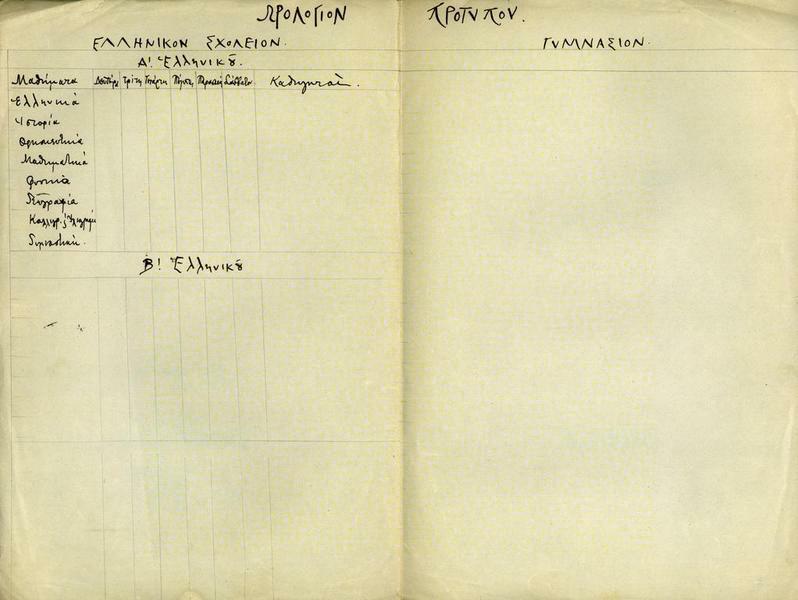 ΩΡΟΛΟΓΙΟΝ ΠΡΟΤΥΠΟΥ.
ΕΛΛΗΝΙΚΟΝ ΣΧΟΛΕΙΟΝ.
Α! Ἑλληνικȣ̂.
Μαθήματα Δευτέρα Τρίτη Τετάρτη Πέμπτη Παρασκευή Σάββατον Καθηγηταί.
Ἑλληνικά
Ἱστορία
Θρησκευτικά
Μαθηματικά
Φυσικά
Γεωγραφία
Γυμναστική.
Β! Ἑλληνικȣ̂
ΓΥΜΝΑΣΙΟΝ.